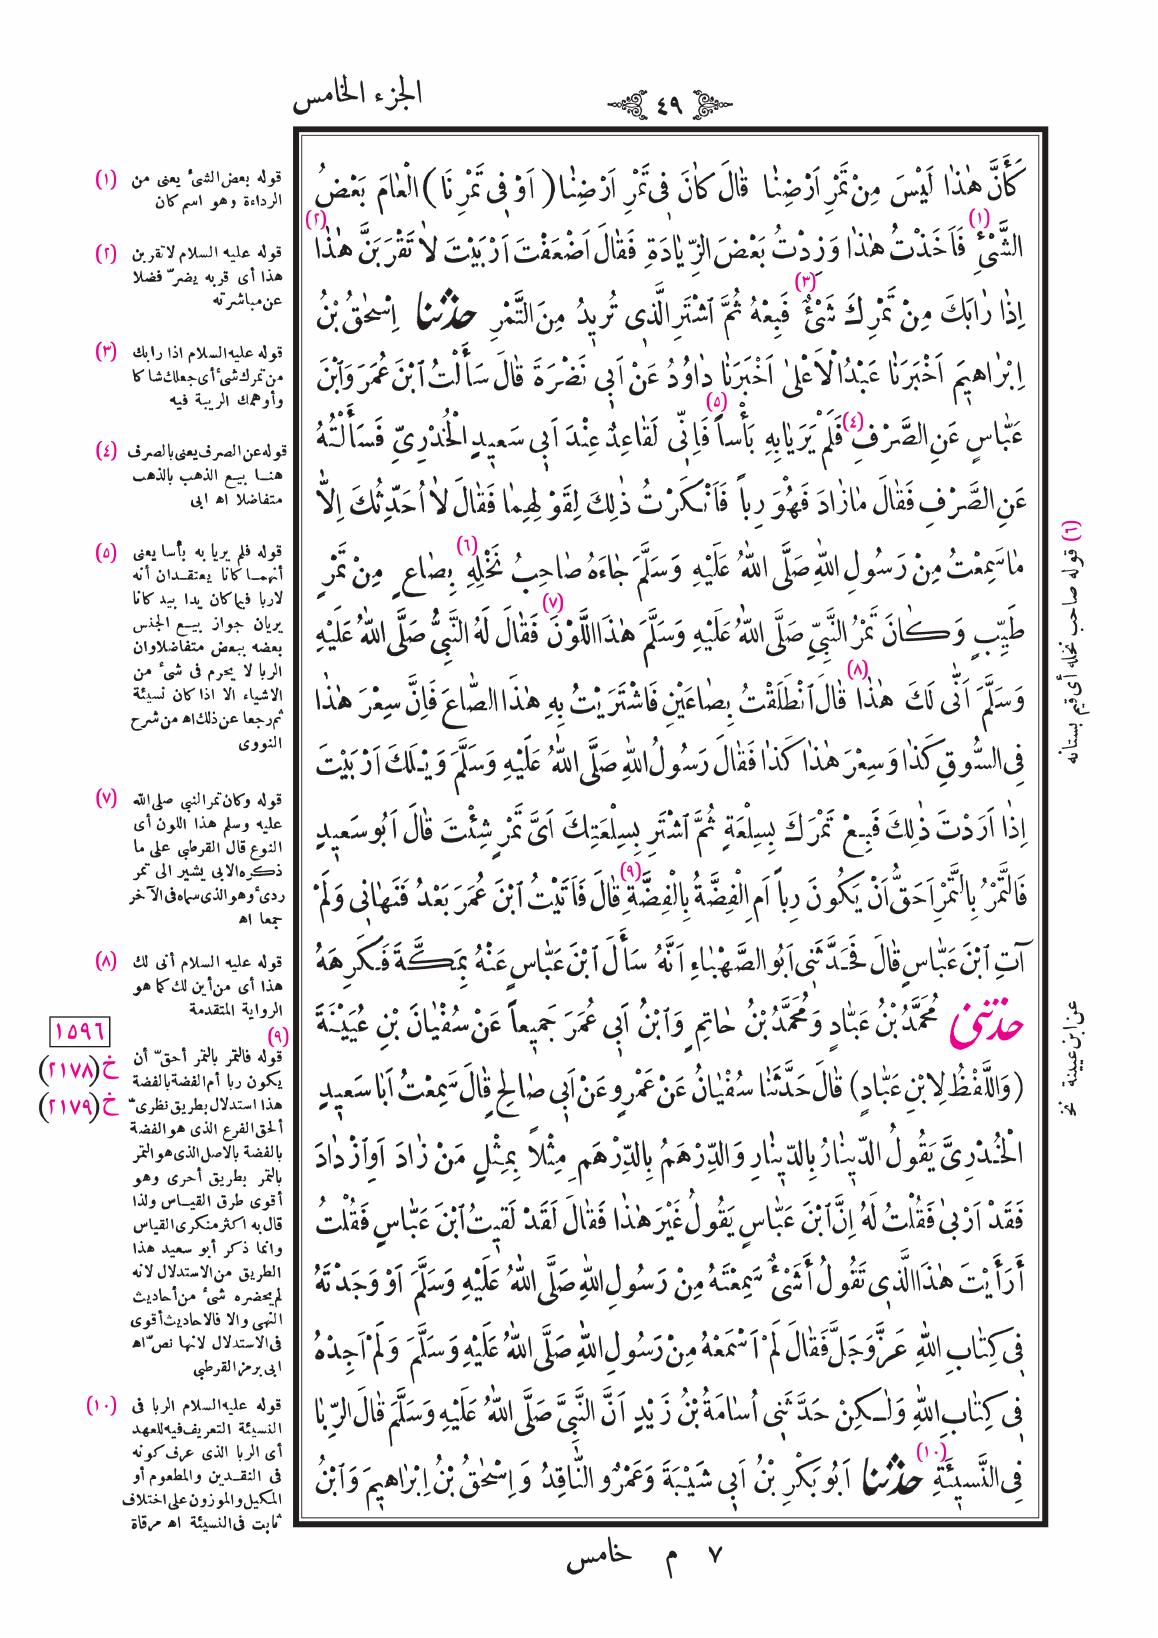 الجزء الخامس
٤٩
كَأَنَّ هٰذٰا لَيْسَ مِنْ تَمْرِ اَرْضِنٰا قٰالَ كٰانَ فِى تَمْرِ اَرْضِنٰا (اَوْ فِى تَمْرِنَا) الْعٰامَ بَعْضُ
الشَّىْءِ (١) فَاَخَذْتُ هٰذٰا وَزِدْتُ بَعْضَ الزِّيٰادَةِ فَقٰالَ اَضْعَفْتَ اَرْبَيْتَ لاٰ تَقْرَبَنَّ هٰذٰا (٢)
اِذٰا رٰابَكَ مِنْ تَمْرِكَ شَىْءٌ (٣) فَبِعْهُ ثُمَّ ٱشْتَرِ الَّذِى تُرِيدُ مِنَ التَّمْرِ حدثنا اِسْحٰقُ بْنُ
اِبْرٰاهِيمَ اَخْبَرَنٰا عَبْدُ الْاَعْلىٰ اَخْبَرَنٰا دٰاوُدُ عَنْ اَبِى نَضْرَةَ قٰالَ سَأَلْتُ ٱبْنَ عُمَرَ وَٱبْنَ
عَبّٰاسٍ عَنِ الصَّرْفِ (٤) فَلَمْ يَرَيٰا بِهِ بَأْساً (٥) فَاِنِّى لَقٰاعِدٌ عِنْدَ اَبِى سَعِيدٍ الْخُدْرِىِّ فَسَأَلْتُهُ
عَنِ الصَّرْفِ فَقٰالَ مٰا زٰادَ فَهُوَ رِباً فَاَنْكَرْتُ ذٰلِكَ لِقَوْلِهِمٰا فَقٰالَ لاٰ اُحَدِّثُكَ اِلاّٰ
مٰا سَمِعْتُ مِنْ رَسُولِ اللهِ صَلَّى اللهُ عَلَيْهِ وَسَلَّمَ جٰاءَهُ صٰاحِبُ نَخْلِهِ (٦) بِصٰاعٍ مِنْ تَمْرٍ
طَيِّبٍ وَكٰانَ تَمْرُ النَّبِىِّ صَلَّى اللهُ عَلَيْهِ وَسَلَّمَ هٰذَا اللَّوْنَ (٧) فَقٰالَ لَهُ النَّبِىُّ صَلَّى اللهُ عَلَيْهِ
وَسَلَّمَ اَنّٰى لَكَ هٰذٰا (٨) قٰالَ ٱنْطَلَقْتُ بِصٰاعَيْنِ فَاشْتَرَيْتُ بِهِ هٰذَا الصّٰاعَ فَاِنَّ سِعْرَ هٰذٰا
فِى السُّوقِ كَذٰا وَسِعْرَ هٰذٰا كَذٰا فَقٰالَ رَسُولُ اللهِ صَلَّى اللهُ عَلَيْهِ وَسَلَّمَ وَيْلَكَ اَرْبَيْتَ
اِذٰا اَرَدْتَ ذٰلِكَ فَبِعْ تَمْرَكَ بِسِلْعَةٍ ثُمَّ ٱشْتَرِ بِسِلْعَتِكَ اَىَّ تَمْرٍ شِئْتَ قٰالَ اَبُو سَعِيدٍ
فَالتَّمْرُ بِالتَّمْرِ اَحَقُّ اَنْ يَكُونَ رِباً اَمِ الْفِضَّةُ بِالْفِضَّةِ (٩) قٰالَ فَاَتَيْتُ ٱبْنَ عُمَرَ بَعْدُ فَنَهٰانِى وَلَمْ
آتِ ٱبْنَ عَبّٰاسٍ قٰالَ فَحَدَّثَنِى اَبُو الصَّهْبٰاءِ اَنَّهُ سَأَلَ ٱبْنَ عَبّٰاسٍ عَنْهُ بِمَكَّةَ فَكَرِهَهُ
حدثنى مُحَمَّدُ بْنُ عَبّٰادٍ وَمُحَمَّدُ بْنُ حٰاتِمٍ وَٱبْنُ اَبِى عُمَرَ جَمِيعاً عَنْ سُفْيٰانَ بْنِ عُيَيْنَةَ
(وَاللَّفْظُ لِابْنِ عَبّٰادٍ) قٰالَ حَدَّثَنٰا سُفْيٰانُ عَنْ عَمْرٍو عَنْ اَبِى صٰالِحٍ قٰالَ سَمِعْتُ اَبٰا سَعِيدٍ
الْخُدْرِىَّ يَقُولُ الدّٖينٰارُ بِالدّٖينٰارِ وَالدِّرْهَمُ بِالدِّرْهَمِ مِثْلاً بِمِثْلٍ مَنْ زٰادَ اَوِٱزْدٰادَ
فَقَدْ اَرْبىٰ فَقُلْتُ لَهُ اِنَّ ٱبْنَ عَبّٰاسٍ يَقُولُ غَيْرَ هٰذٰا فَقٰالَ لَقَدْ لَقِيتُ ٱبْنَ عَبّٰاسٍ فَقُلْتُ
أَرَأَيْتَ هٰذَا الَّذِى تَقُولُ أَشَىْءٌ سَمِعْتَهُ مِنْ رَسُولِ اللهِ صَلَّى اللهُ عَلَيْهِ وَسَلَّمَ اَوْ وَجَدْتَهُ
فِى كِتٰابِ اللهِ عَزَّ وَجَلَّ فَقٰالَ لَمْ اَسْمَعْهُ مِنْ رَسُولِ اللهِ صَلَّى اللهُ عَلَيْهِ وَسَلَّمَ وَلَمْ اَجِدْهُ
فِى كِتٰابِ اللهِ وَلٰكِنْ حَدَّثَنِى اُسٰامَةُ بْنُ زَيْدٍ اَنَّ النَّبِىَّ صَلَّى اللهُ عَلَيْهِ وَسَلَّمَ قٰالَ الرِّبٰا
فِى النَّسِيئَةِ (١٠) حدثنا اَبُو بَكْرِ بْنُ اَبِى شَيْبَةَ وَعَمْرٌو النّٰاقِدُ وَاِسْحٰقُ بْنُ اِبْرٰاهِيمَ وَٱبْنُ
٧ م خامس
(٦) قوله صاحب نخله أى قيم بستانه
عن ابن عيينة نخ
(١) قوله بعض الشئ يعنى من
الرداءة وهو اسم كان
(٢) قوله عليه السلام لا تقربن
هذا أى قربه يضرّ فضلا
عن مباشرته
(٣) قوله عليه السلام اذا رابك
من تمرك شئ أى جعلك شاكا
وأوهمك الريبة فيه
(٤) قوله عن الصرف يعنى بالصرف
هنا بيع الذهب بالذهب
متفاضلا اه ابى
(٥) قوله فلم يريا به بأسا يعنى
أنهما كانا يعتقدان أنه
لاربا فيما كان يدا بيد كانا
يريان جواز بيع الجنس
بعضه ببعض متفاضلا وان
الربا لا يحرم فى شئ من
الاشياء الا اذا كان نسيئة
ثم رجعا عن ذلك اه من شرح
النووى
(٧) قوله وكان تمر النبى صلى الله
عليه وسلم هذا اللون أى
النوع قال القرطبى على ما
ذكره الابى يشير الى تمر
ردئ وهو الذى سماه فى الآخر
جمعا اه
(٨) قوله عليه السلام أنى لك
هذا أى من أين لك كما هو
الرواية المتقدمة
(٩)
قوله فالتمر بالتمر أحقّ أن
يكون ربا أم الفضة بالفضة
هذا استدلال بطريق نظرىّ
ألحق الفرع الذى هو الفضة
بالفضة بالاصل الذى هو التمر
بالتمر بطريق أحرى وهو
أقوى طرق القياس ولذا
قال به اكثر منكرى القياس
وانما ذكر أبو سعيد هذا
الطريق من الاستدلال لانه
لم يحضره شئ من أحاديث
النهى والا فالاحاديث أقوى
فى الاستدلال لانها نصّ اه
ابى برمز القرطبى
(١٠) قوله عليه السلام الربا فى
النسيئة التعريف فيه للعهد
أى الربا الذى عرف كونه
فى النقدين والمطعوم أو
المكيل والموزون على اختلاف
ثابت فى النسيئة اه مرقاة
١٥٩٦
خ (٢١٧٨)
خ (٢١٧٩)